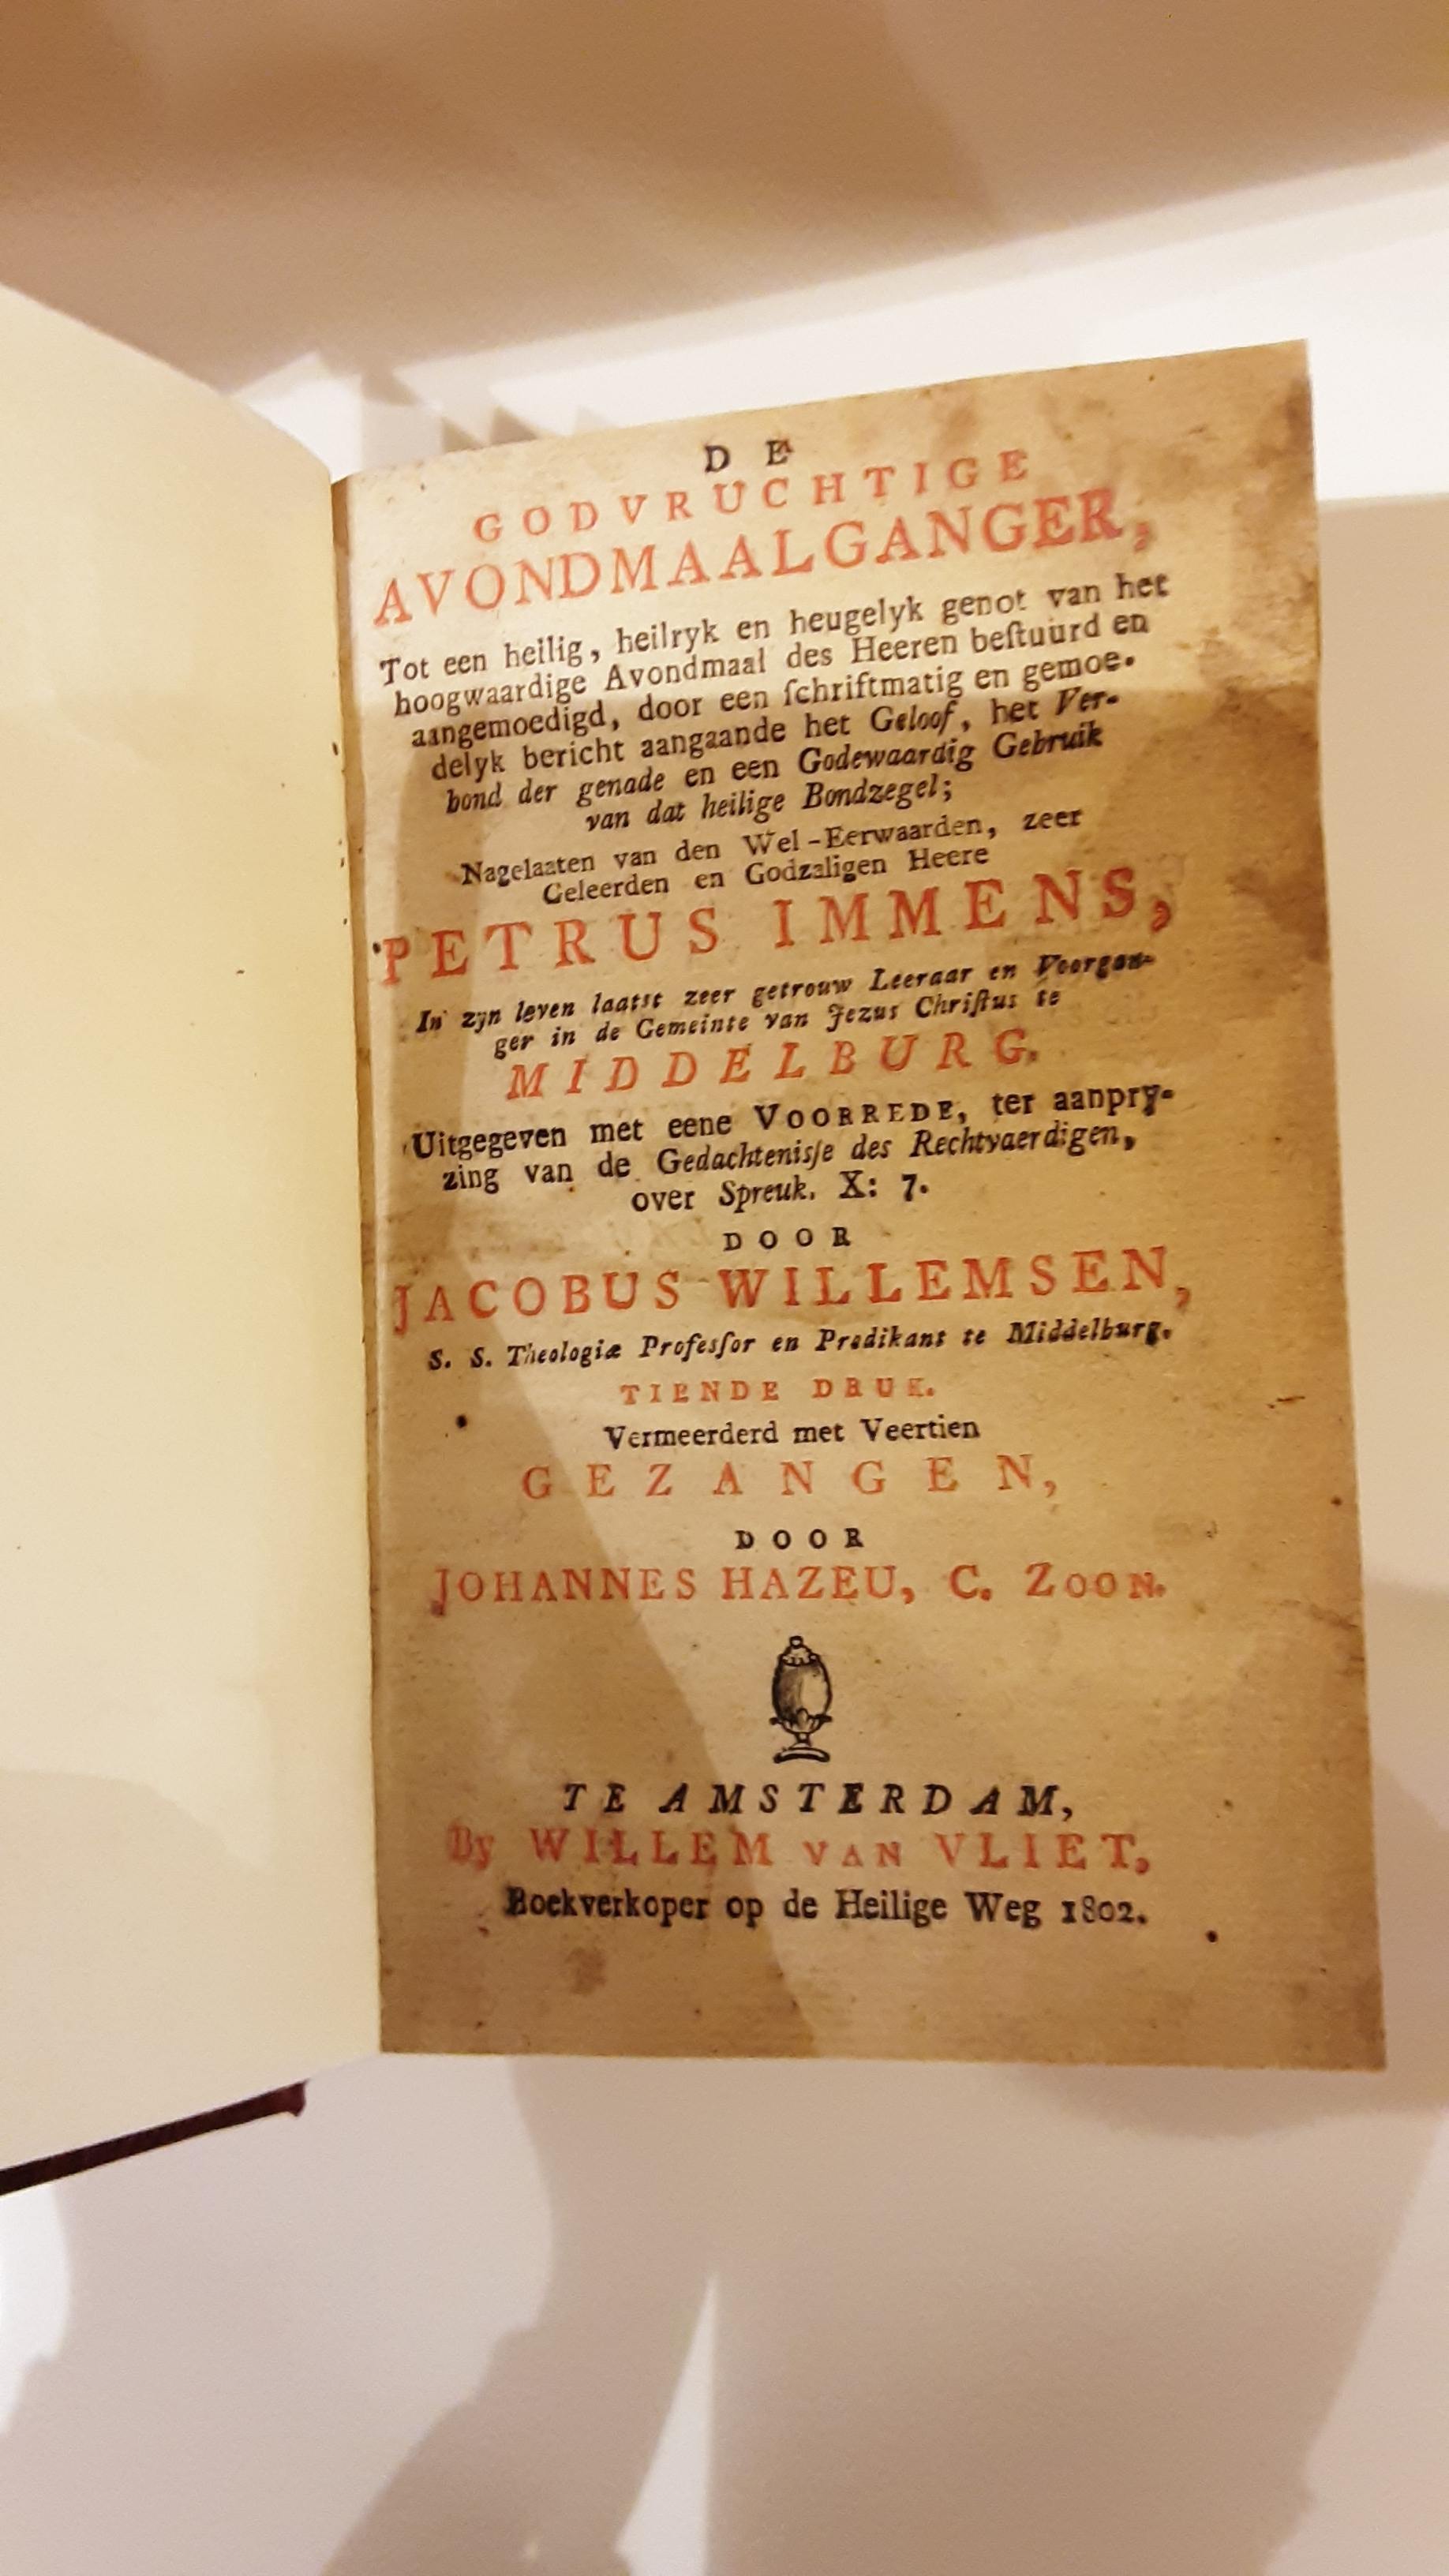 DE
GODVRUCHTIGE
AVONDMAALGANGER,
Tot een heilig, heilryk en heugelyk genot van het
hoogwaardige Avondmaal des Heeren beſtuurd en
aangemoedigd, door een ſchriftmatig en gemoe-
delyk bericht aangaande het Geloof, het Ver-
bond der genade en een Godewaardig Gebruik
van dat heilige Bondzegel;
Nagelaaten van den Wel-Eerwaarden, zeer
Geleerden en Godzaligen Heere
PETRUS IMMENS,
In zyn leven laatst zeer getrouw Leeraar en Voorgan-
ger in de Gemeinte van Jezus Chriſtus te
MIDDELBURG.
Uitgegeven met eene VOORREDE, ter aanpry-
zing van de Gedachtenisſe des Rechtvaerdigen,
over Spreuk. X: 7.
DOOR
JACOBUS WILLEMSEN,
S. S. Theologiæ Profesſor en Predikant te Middelburg.
TIENDE DRUK.
Vermeerderd met Veertien
GEZANGEN,
DOOR
JOHANNES HAZEU, C. ZOON.
TE AMSTERDAM,
By WILLEM VAN VLIET,
Boekverkoper op de Heilige Weg 1802.